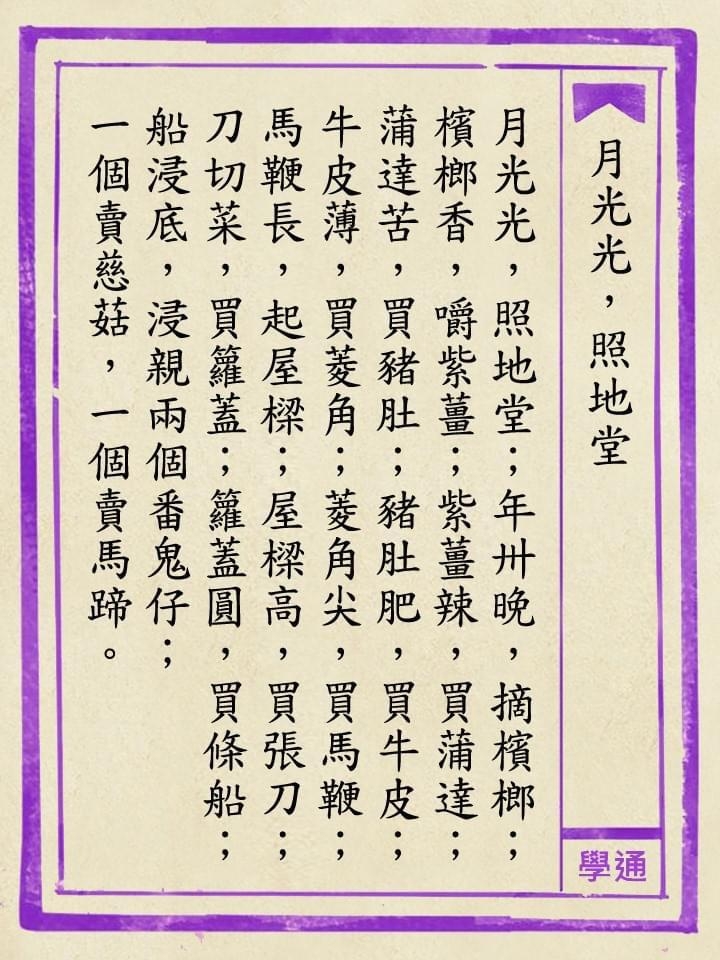 月光光，照地堂
月光光，照地堂；年卅晚，摘檳榔；
檳榔香，嚼紫薑；紫薑辣，買蒲達；
蒲達苦，買豬肚；豬肚肥，買牛皮；
牛皮薄，買菱角；菱角尖，買馬鞭；
馬鞭長，起屋樑；屋樑高，買張刀；
刀切菜，買籮蓋；籮蓋圓，買條船；
船浸底，浸親兩個番鬼仔；
一個賣慈菇，一個賣馬蹄。
學通